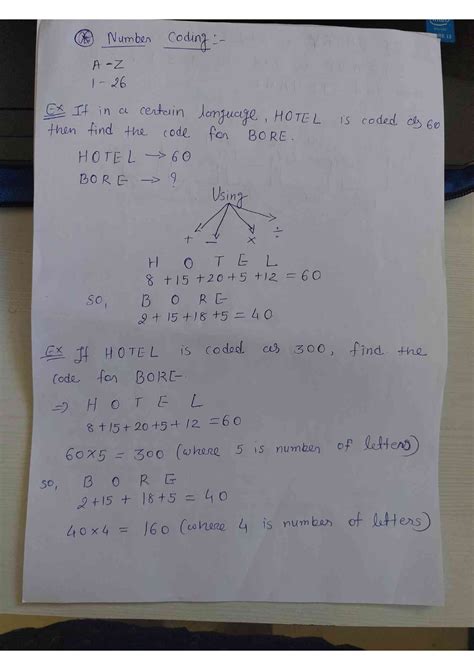 * Number Coding:-
A-Z
1-26
Ex If in a certain language, HOTEL is coded as 60
then find the code for BORE.
HOTEL → 60
BORE → ?
Using
+ - × ÷
H O T E L
8+15+20+5+12=60
so, B O R E
2+15+18+5=40
Ex If HOTEL is coded as 300, find the
code for BORE
⇒ H O T E L
8+15+20+5+12=60
60×5=300 (where 5 is number of letters)
so, B O R E
2+15+18+5=40
40×4=160 (where 4 is number of letters)